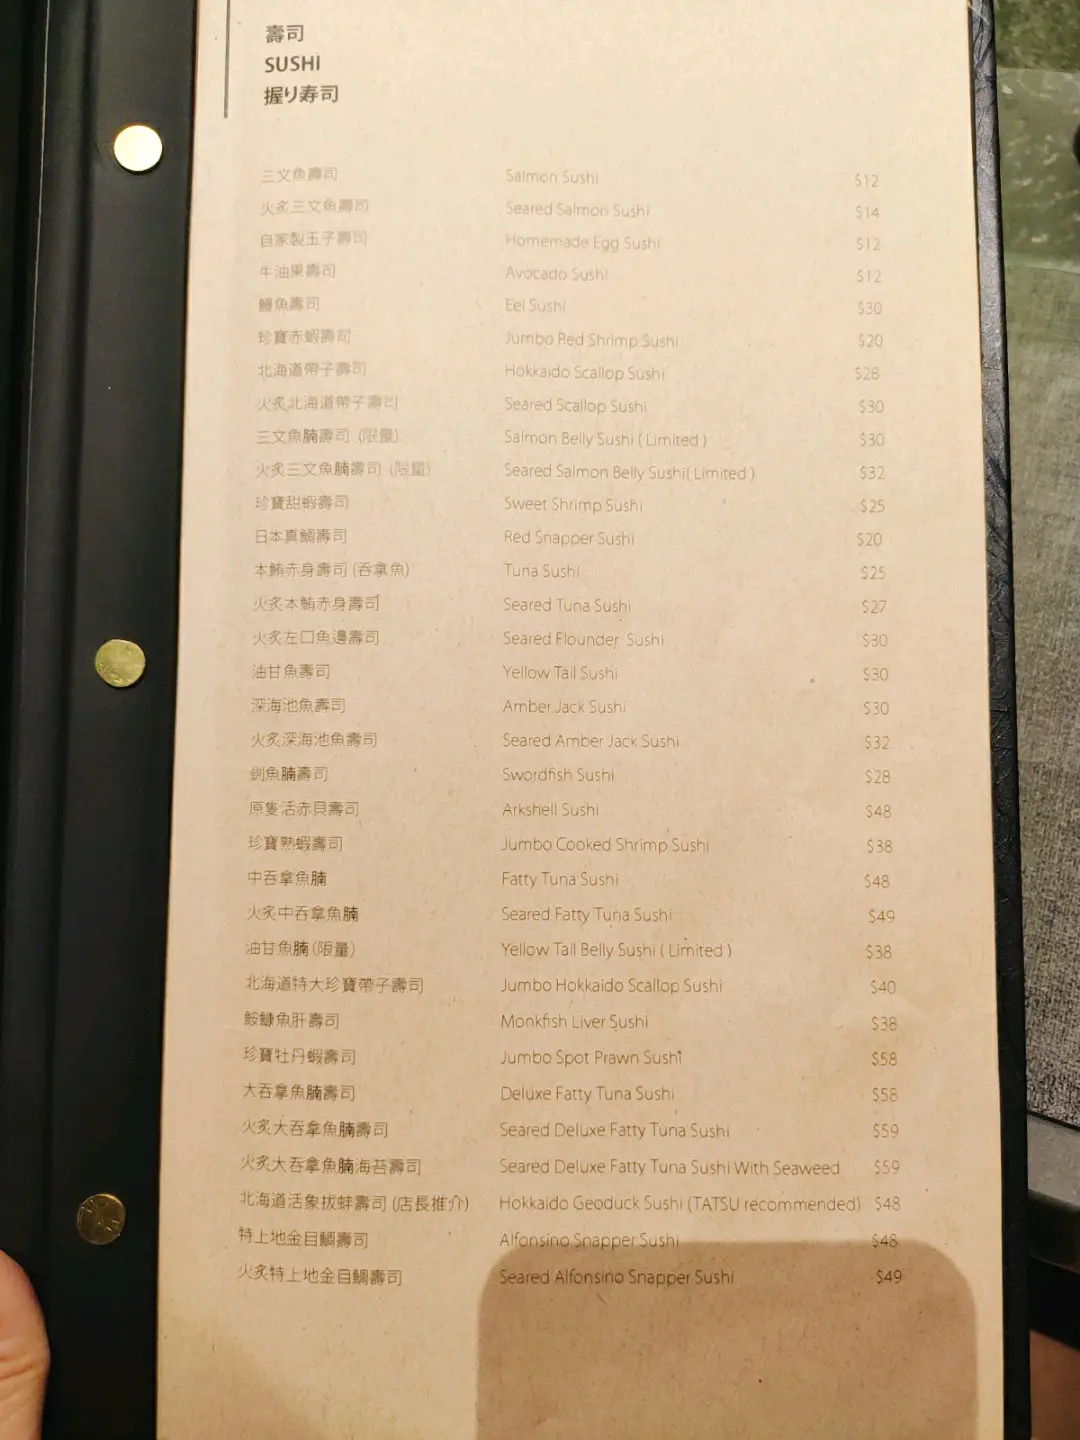 壽司
SUSHI
握り寿司
三文魚壽司 Salmon Sushi $12
火炙三文魚壽司 Seared Salmon Sushi $14
自家製玉子壽司 Homemade Egg Sushi $12
牛油果壽司 Avocado Sushi $12
鰻魚壽司 Eel Sushi $30
珍寶赤蝦壽司 Jumbo Red Shrimp Sushi $20
北海道帶子壽司 Hokkaido Scallop Sushi $28
火炙北海道帶子壽司 Seared Scallop Sushi $30
三文魚腩壽司 (限量) Salmon Belly Sushi ( Limited ) $30
火炙三文魚腩壽司 (限量) Seared Salmon Belly Sushi( Limited ) $32
珍寶甜蝦壽司 Sweet Shrimp Sushi $25
日本真鯛壽司 Red Snapper Sushi $20
本鮪赤身壽司 (吞拿魚) Tuna Sushi $25
火炙本鮪赤身壽司 Seared Tuna Sushi $27
火炙左口魚邊壽司 Seared Flounder Sushi $30
油甘魚壽司 Yellow Tail Sushi $30
深海池魚壽司 Amber Jack Sushi $30
火炙深海池魚壽司 Seared Amber Jack Sushi $32
劍魚腩壽司 Swordfish Sushi $28
原隻活赤貝壽司 Arkshell Sushi $48
珍寶熟蝦壽司 Jumbo Cooked Shrimp Sushi $38
中吞拿魚腩 Fatty Tuna Sushi $48
火炙中吞拿魚腩 Seared Fatty Tuna Sushi $49
油甘魚腩 (限量) Yellow Tail Belly Sushi ( Limited ) $38
北海道特大珍寶帶子壽司 Jumbo Hokkaido Scallop Sushi $40
鮟鱇魚肝壽司 Monkfish Liver Sushi $38
珍寶牡丹蝦壽司 Jumbo Spot Prawn Sushi $58
大吞拿魚腩壽司 Deluxe Fatty Tuna Sushi $58
火炙大吞拿魚腩壽司 Seared Deluxe Fatty Tuna Sushi $59
火炙大吞拿魚腩海苔壽司 Seared Deluxe Fatty Tuna Sushi With Seaweed $59
北海道活象拔蚌壽司 (店長推介) Hokkaido Geoduck Sushi (TATSU recommended) $48
特上地金目鯛壽司 Alfonsino Snapper Sushi $48
火炙特上地金目鯛壽司 Seared Alfonsino Snapper Sushi $49